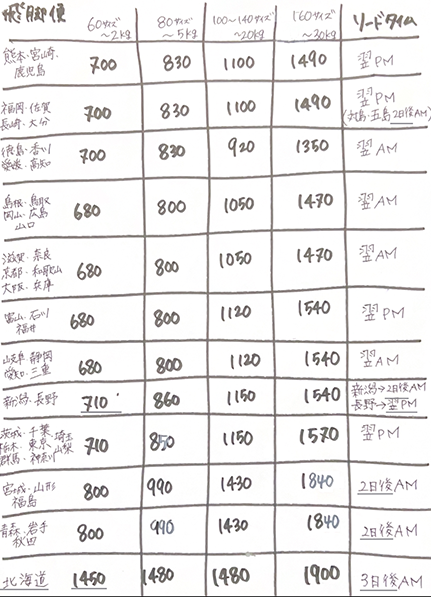 飛脚便 60サイズ ～2kg 80サイズ ～5kg 100～140サイズ ～20kg 160サイズ ～30kg リードタイム
熊本・宮崎・鹿児島 700 830 1100 1490 翌PM
福岡・佐賀 長崎・大分 700 830 1100 1490 翌PM (対馬・五島 2日後AM)
徳島・香川 愛媛・高知 700 830 920 1350 翌AM
島根・鳥取 岡山・広島 山口 680 800 1050 1470 翌AM
滋賀・奈良 京都・和歌山 大阪・兵庫 680 800 1050 1470 翌AM
富山・石川 福井 680 800 1120 1540 翌PM
岐阜・静岡 愛知・三重 680 800 1120 1540 翌AM
新潟・長野 710 860 1150 1540 新潟→2日後AM 長野→翌PM
茨城・千葉 埼玉 栃木・東京 山梨 群馬・神奈川 710 850 1150 1570 翌PM
宮城・山形 福島 800 990 1430 1840 2日後AM
青森・岩手 秋田 800 990 1430 1840 2日後AM
北海道 1450 1480 1480 1900 3日後AM